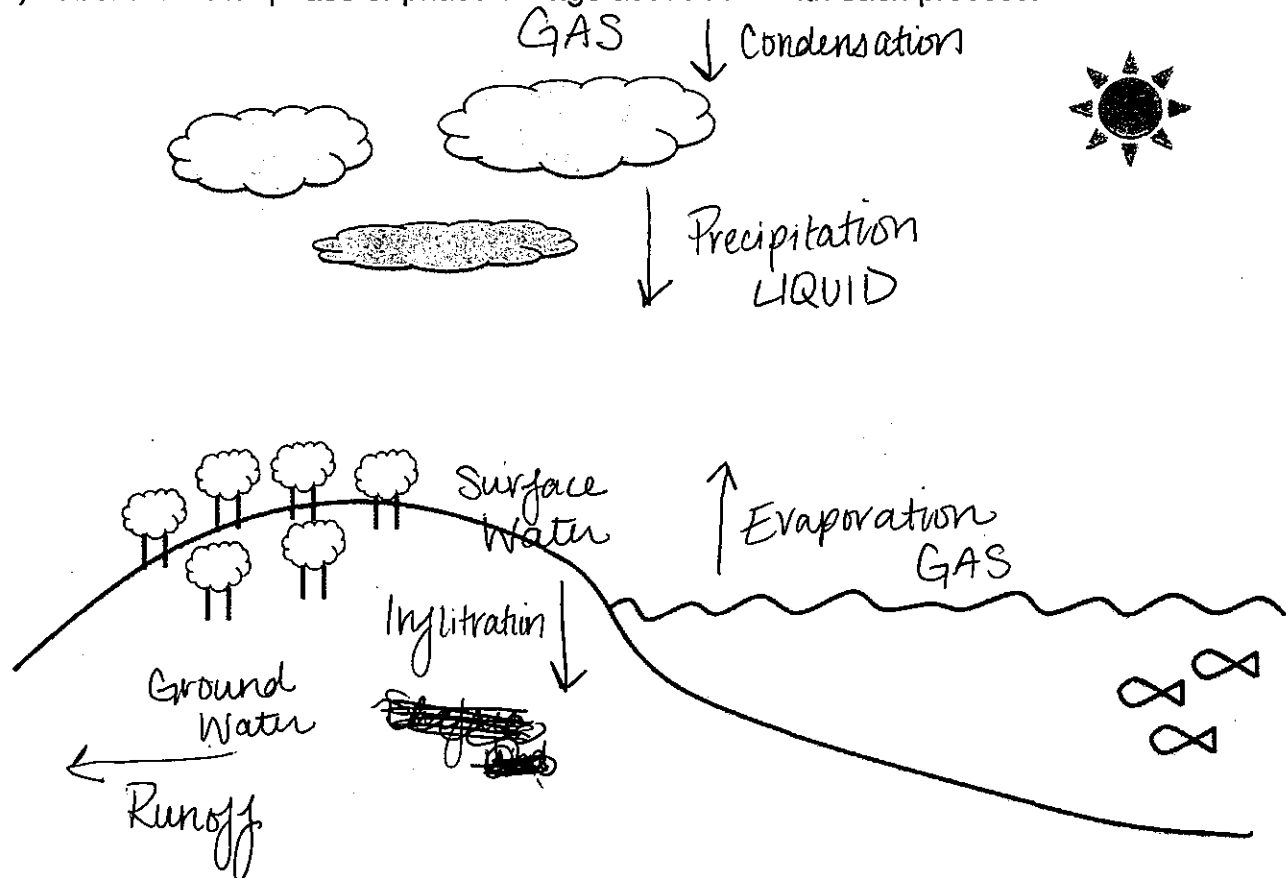 GAS
Condensation
Precipitation
LIQUID
Surface
Water
Evaporation
GAS
Inflitration
Ground
Water
Runoff